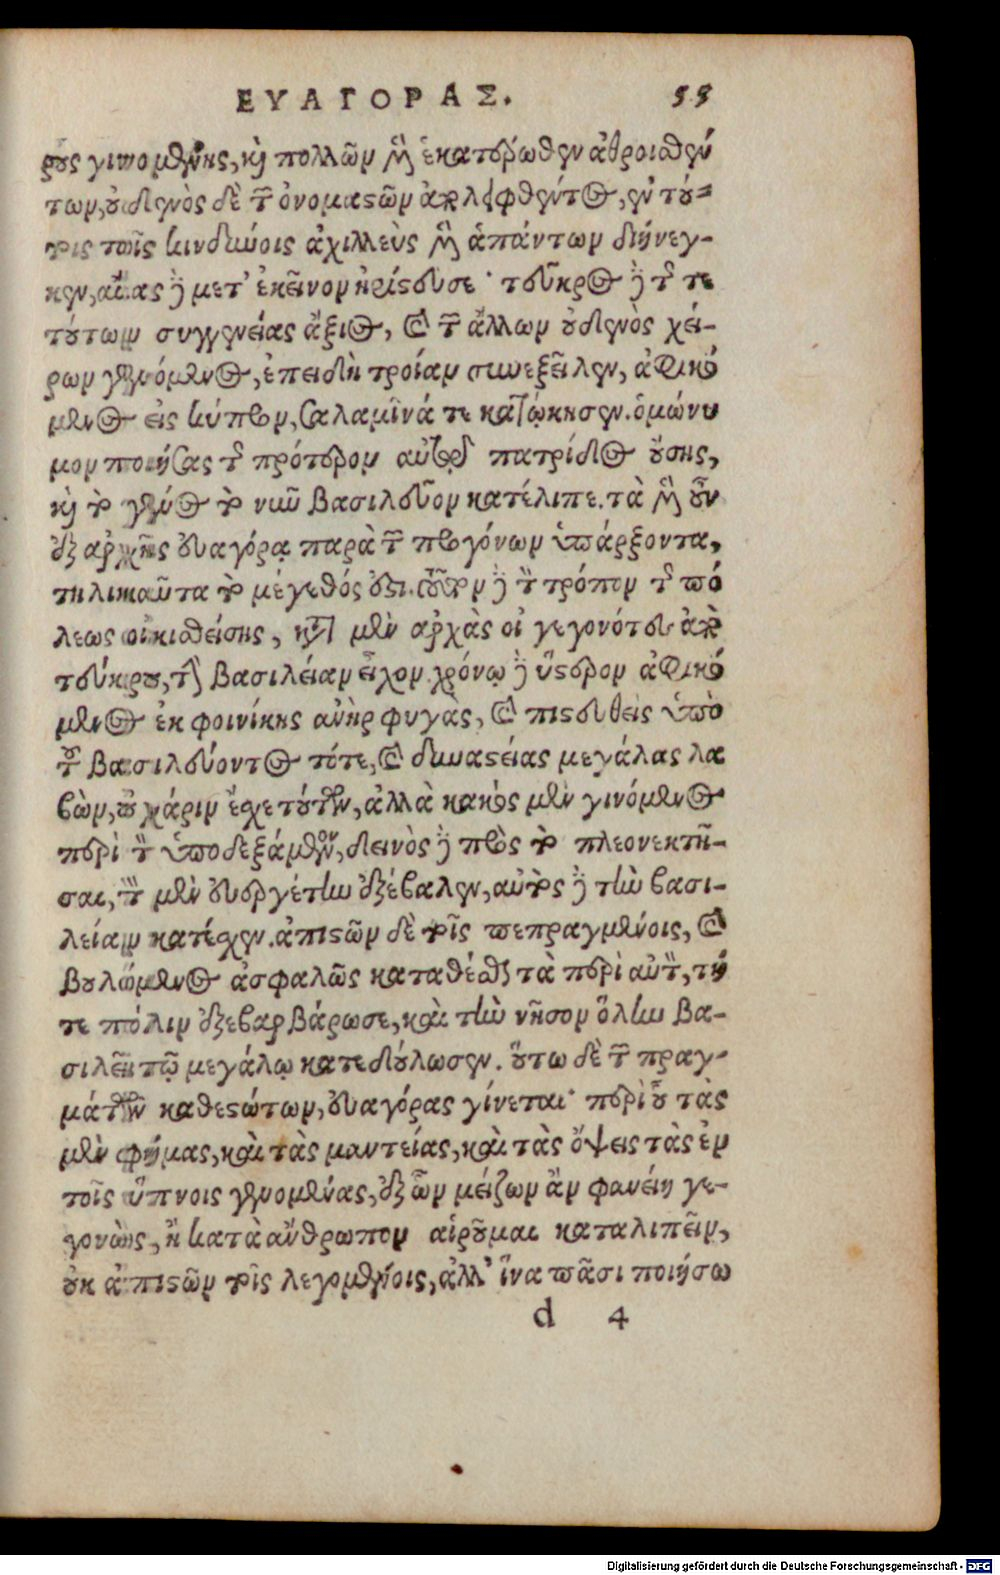 ΕΥΑΓΟΡΑΣ. 55
ρους γινομένης, καὶ πολλῶν μὲν ἑκατέρωθεν ἀθροισθέν
των, οὐδενὸς δὲ τῶν ὀνομαστῶν ἀπολειφθέντος, ἐν τού-
τοις τοῖς κινδύνοις ἀχιλλεὺς μὲν ἁπάντων διήνεγ-
κεν, αἴας δὲ μετ' ἐκεῖνον ἠρίστευσε· τεῦκρος δὲ τῆς τε
τούτων συγγενείας ἄξιος, καὶ τῶν ἄλλων οὐδενὸς χεί-
ρων γενόμενος, ἐπειδὴ τροίαν συνεξεῖλεν, ἀφικό
μενος εἰς κύπρον, σαλαμῖνά τε κατῴκησεν. ὁμώνυ
μον ποιήσας τῆς πρότερον αὐτοῦ πατρίδος οὔσης,
καὶ τὸ γένος τὸ νῦν βασιλεῦον κατέλιπε. τὰ μὲν οὖν
ἐξ ἀρχῆς εὐαγόρᾳ παρὰ τῶν προγόνων ὑπάρξοντα,
τηλικαῦτα τὸ μέγεθός ἐστι. τοῦτον δὲ τὸν τρόπον τῆς πό
λεως οἰκισθείσης, κατ' μὲν ἀρχὰς οἱ γεγονότες ἀπὸ
τεύκρου, τὴν βασιλείαν εἶχον. χρόνῳ δὲ ὕστερον ἀφικό
μενος ἐκ φοινίκης ἀνὴρ φυγὰς, καὶ πιστευθεὶς ὑπὸ
τοῦ βασιλεύοντος τότε, καὶ δυναστείας μεγάλας λα
βὼν, οὐ χάριν ἔχε τούτων, ἀλλὰ κακὸς μὲν γινόμενος
περὶ τὸν ὑποδεξάμενον, δεινὸς δὲ πρὸς τὸ πλεονεκτῆ-
σαι, τὸν μὲν εὐεργέτην ἐξέβαλεν, αὐτὸς δὲ τὴν βασι-
λείαν κατέσχεν. ἀπιστῶν δὲ τοῖς πεπραγμένοις, καὶ
βουλόμενος ἀσφαλῶς καταθέσθαι τὰ περὶ αὐτὸν, τήν
τε πόλιν ἐξεβαρβάρωσε, καὶ τὴν νῆσον ὅλην βα-
σιλεῖ τῷ μεγάλῳ κατεδούλωσεν. οὕτω δὲ τῶν πραγ-
μάτων καθεστώτων, εὐαγόρας γίνεται· περὶ οὗ τὰς
μὲν φήμας, καὶ τὰς μαντείας, καὶ τὰς ὄψεις τὰς ἐν
τοῖς ὕπνοις γενομένας, ἐξ ὧν μείζων ἂν φανείη γε-
γονὼς, ἢ κατὰ ἄνθρωπον αἱροῦμαι καταλιπεῖν,
οὐκ ἀπιστῶν τοῖς λεγομένοις, ἀλλ' ἵνα πᾶσι ποιήσω
d 4
Digitalisierung gefördert durch die Deutsche Forschungsgemeinschaft - DFG